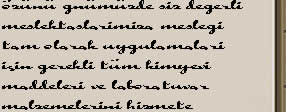 özünü gnümüzde siz degerli
meslektaslarimiza meslegi
tam olarak uygulamalari
için gerekli tüm kimyevi
maddeleri ve laboratuvar
malzemelerini hizmete